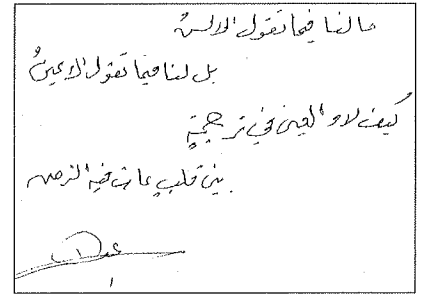 مالنا فيما تقول الالسنُ
بل لنا فيما تقول الاعينُ
كيف لا و العين في ترجمةٍ
بين قلبٍ عاث فيه الزمن